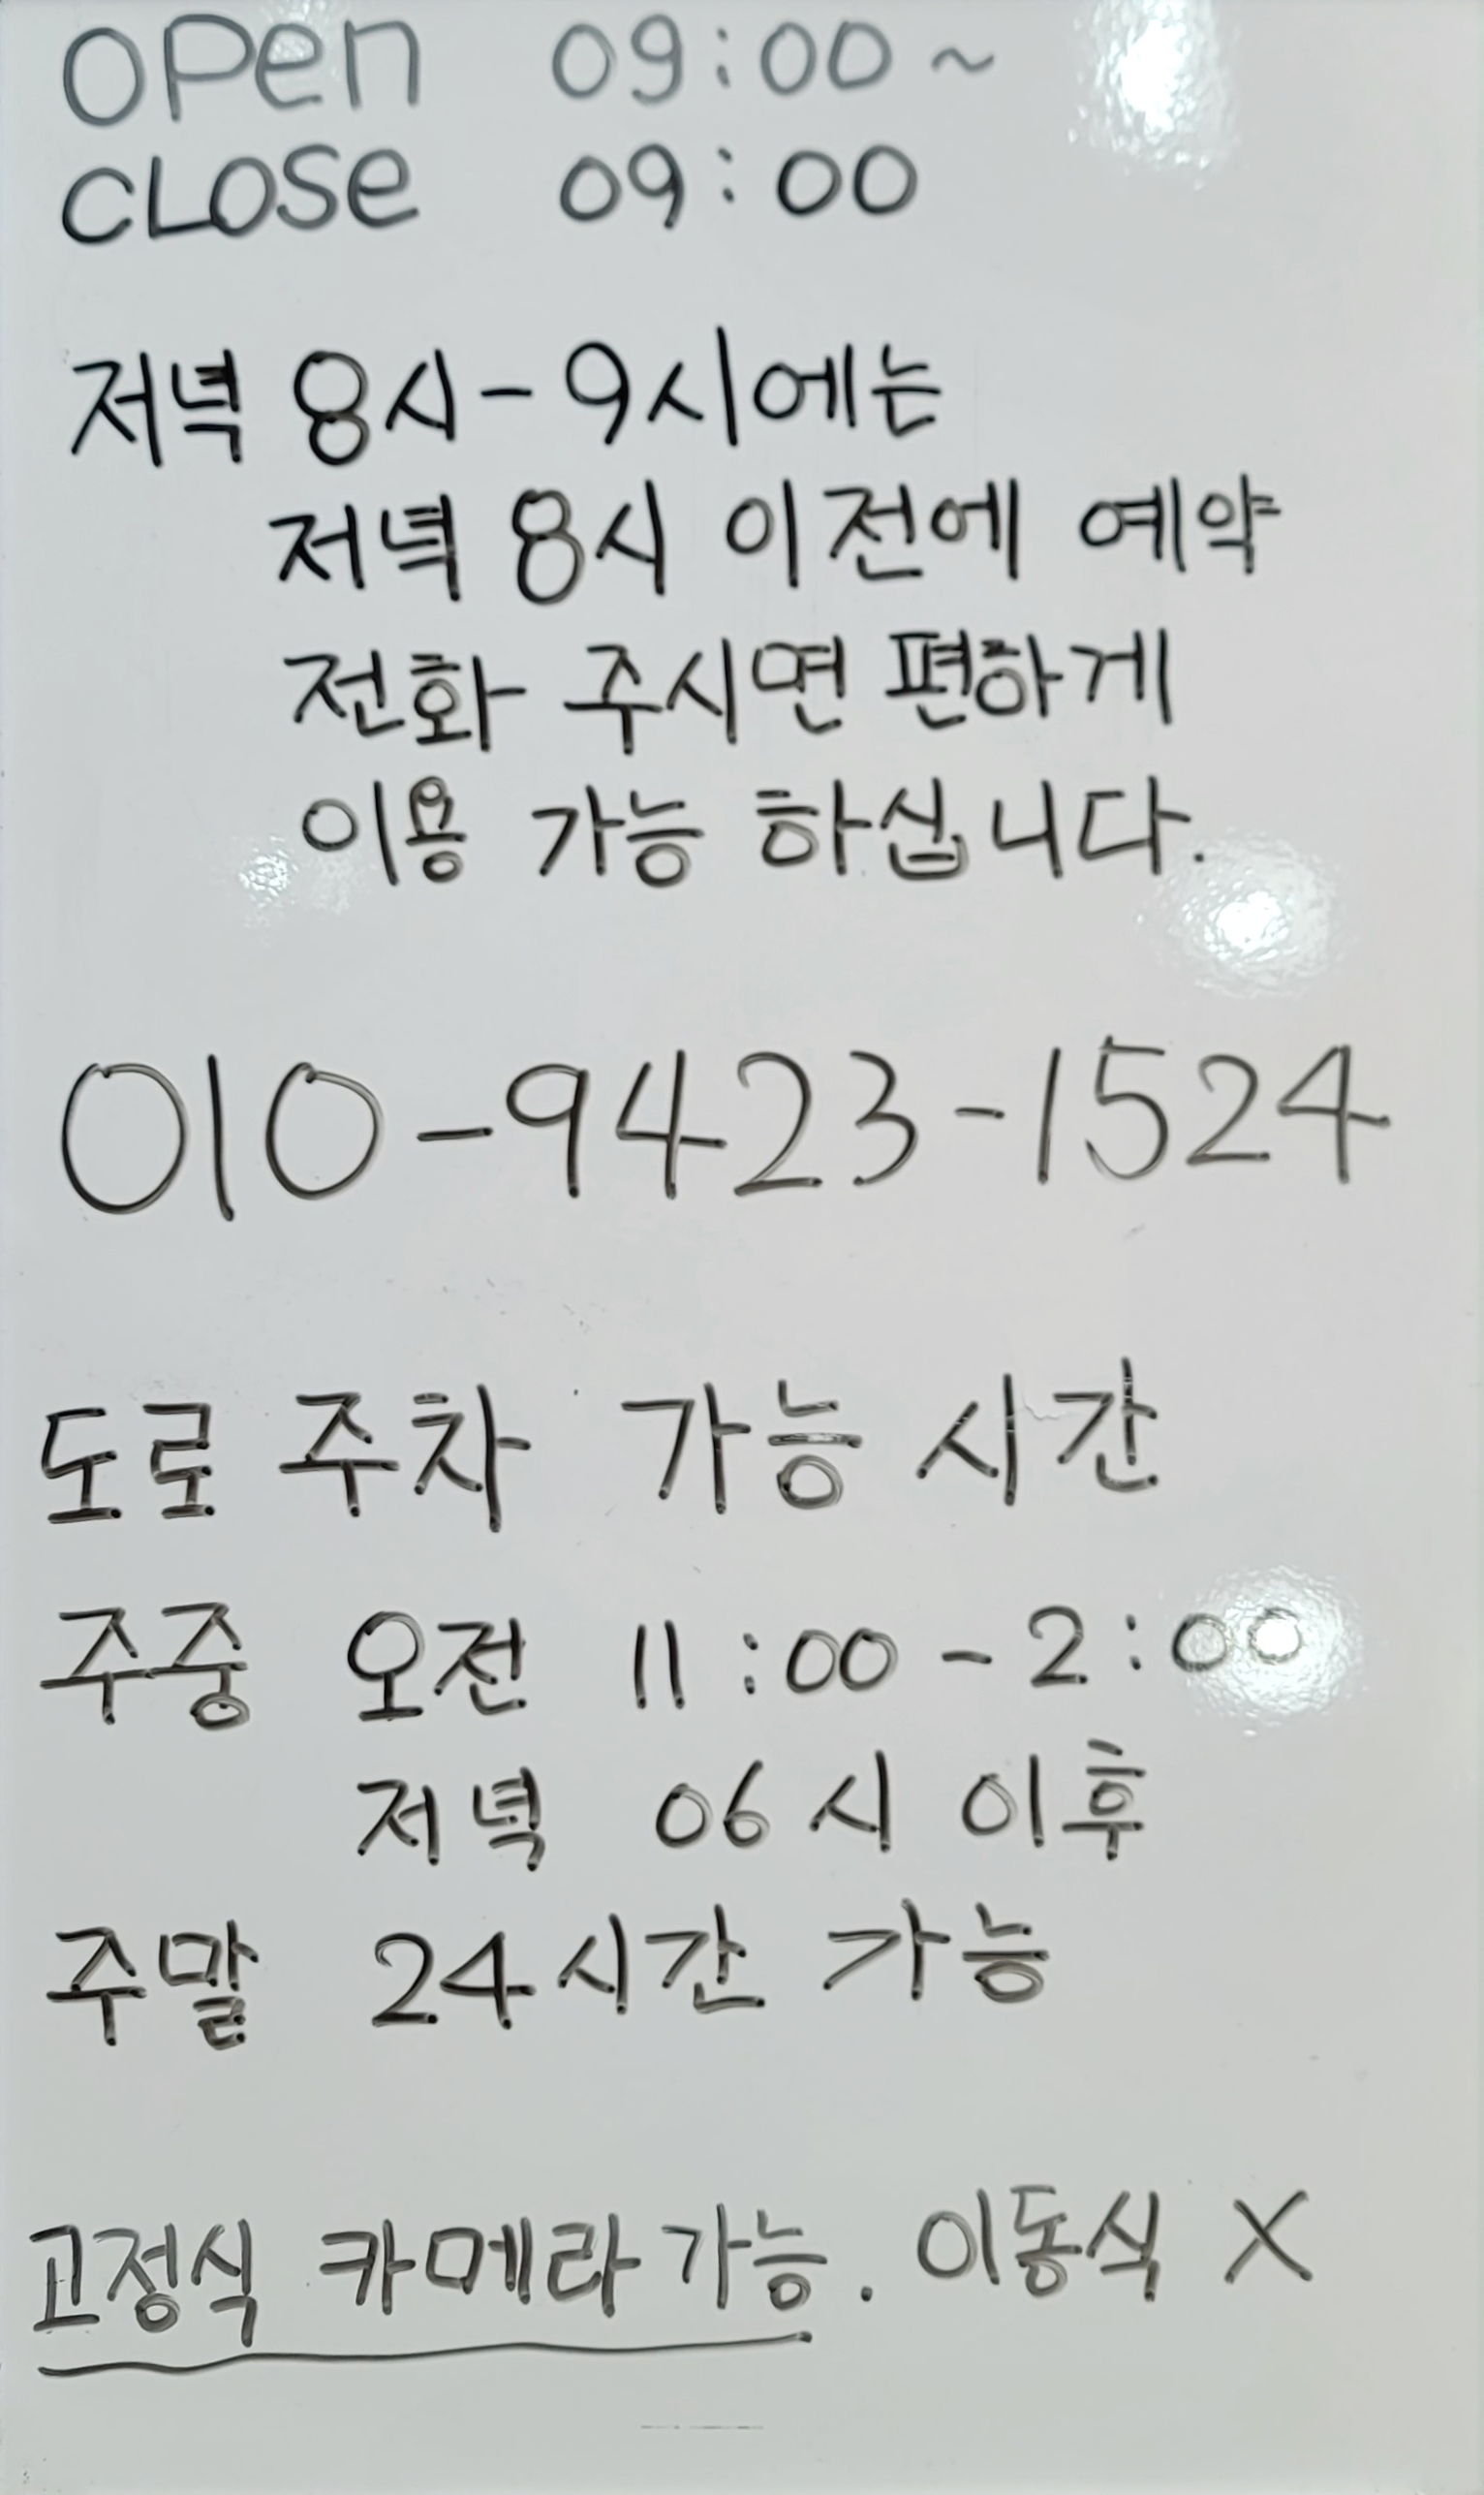 OPen 09:00~
CLOSe 09:00
저녁 8시-9시에는
저녁 8시 이전에 예약
전화 주시면 편하게
이용 가능 하십니다.
010-9423-1524
도로 주차 가능 시간
주중 오전 11:00-2:00
저녁 06시 이후
주말 24시간 가능
고정식 카메라 가능. 이동식 X